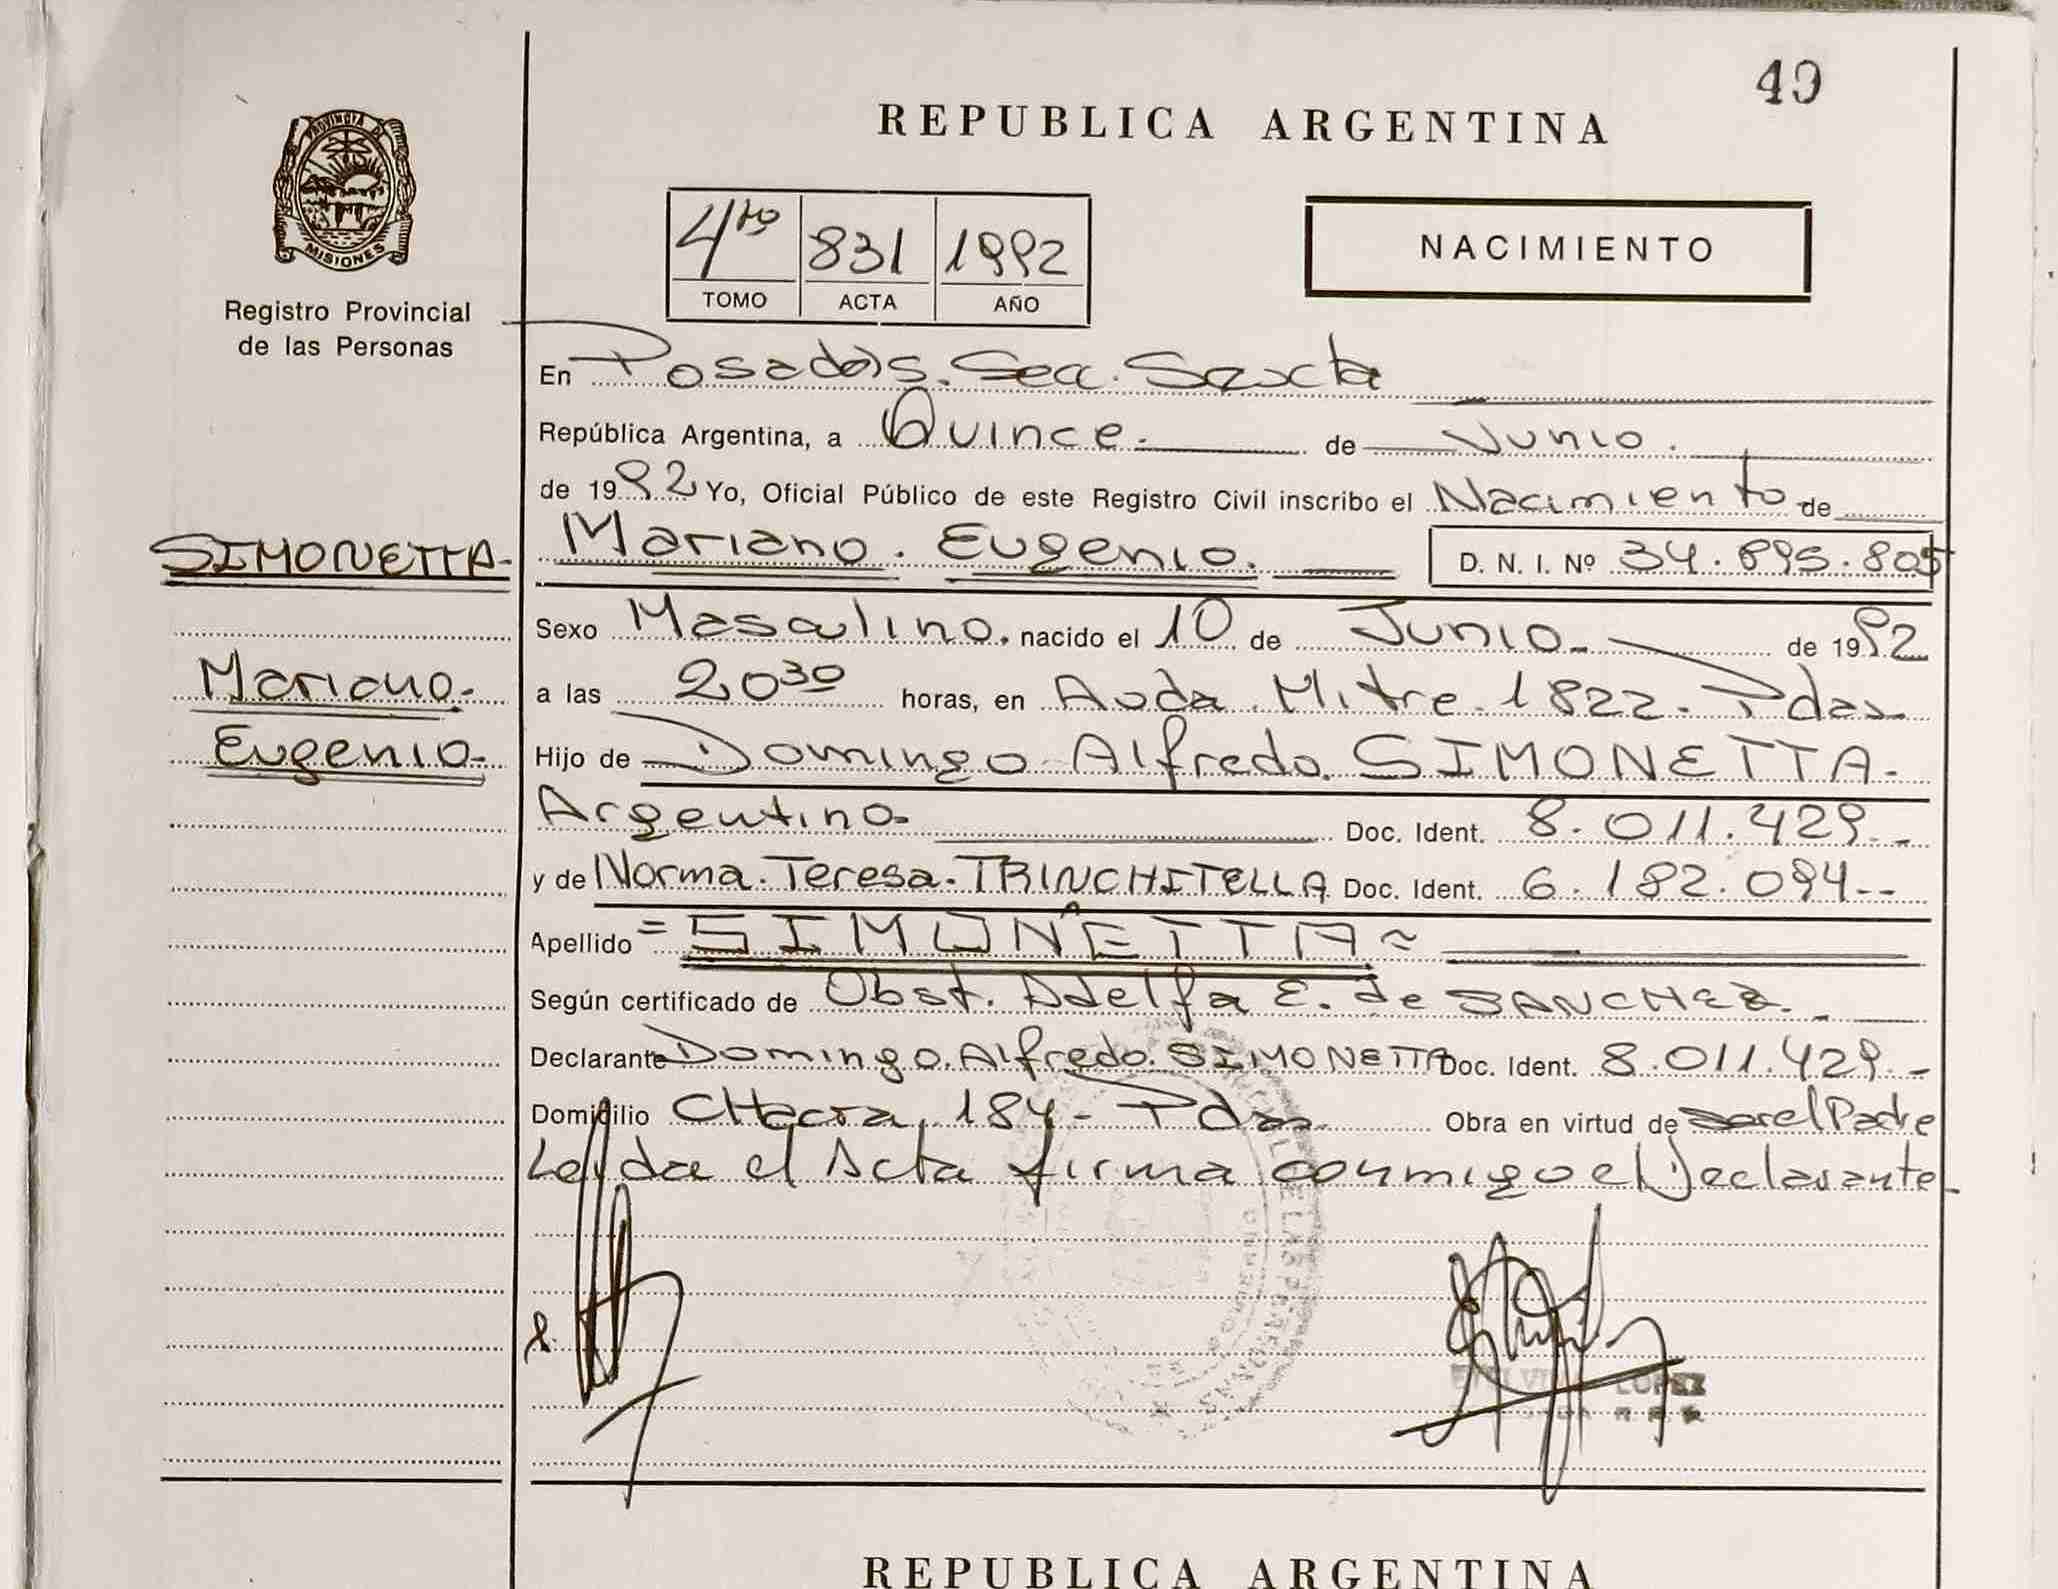 49
REPUBLICA ARGENTINA
PROVINCIA DE
MISIONES
Registro Provincial
de las Personas
4to 831 1992
TOMO ACTA AÑO
NACIMIENTO
En Posadas. Secc. Sexta
República Argentina, a Quince. de Junio.
de 1992 Yo, Oficial Público de este Registro Civil inscribo el Nacimiento de
SIMONETTA-
Mariano. Eugenio. D. N. I. Nº 34.895.805
Sexo Masculino. nacido el 10 de Junio. de 1992
Mariano.-
a las 20 30 horas, en Avda. Mitre. 1822. Pdas
Eugenio.-
Hijo de Domingo Alfredo. SIMONETTA.
Argentino. Doc. Ident. 8.011.429.-
y de Norma. Teresa. TRINCHITELLA Doc. Ident. 6.182.094--
Apellido = SIMONETTA ≈
Según certificado de Obst. Adelfa E. de SANCHEZ.
Declarante Domingo. Alfredo. SIMONETTA Doc. Ident. 8.011.429.-
Domicilio CHacra, 184- Pdas Obra en virtud de ser el Padre
Leyda el Acta firma conmigo el Declarante
LOPEZ
REPUBLICA ARGENTINA